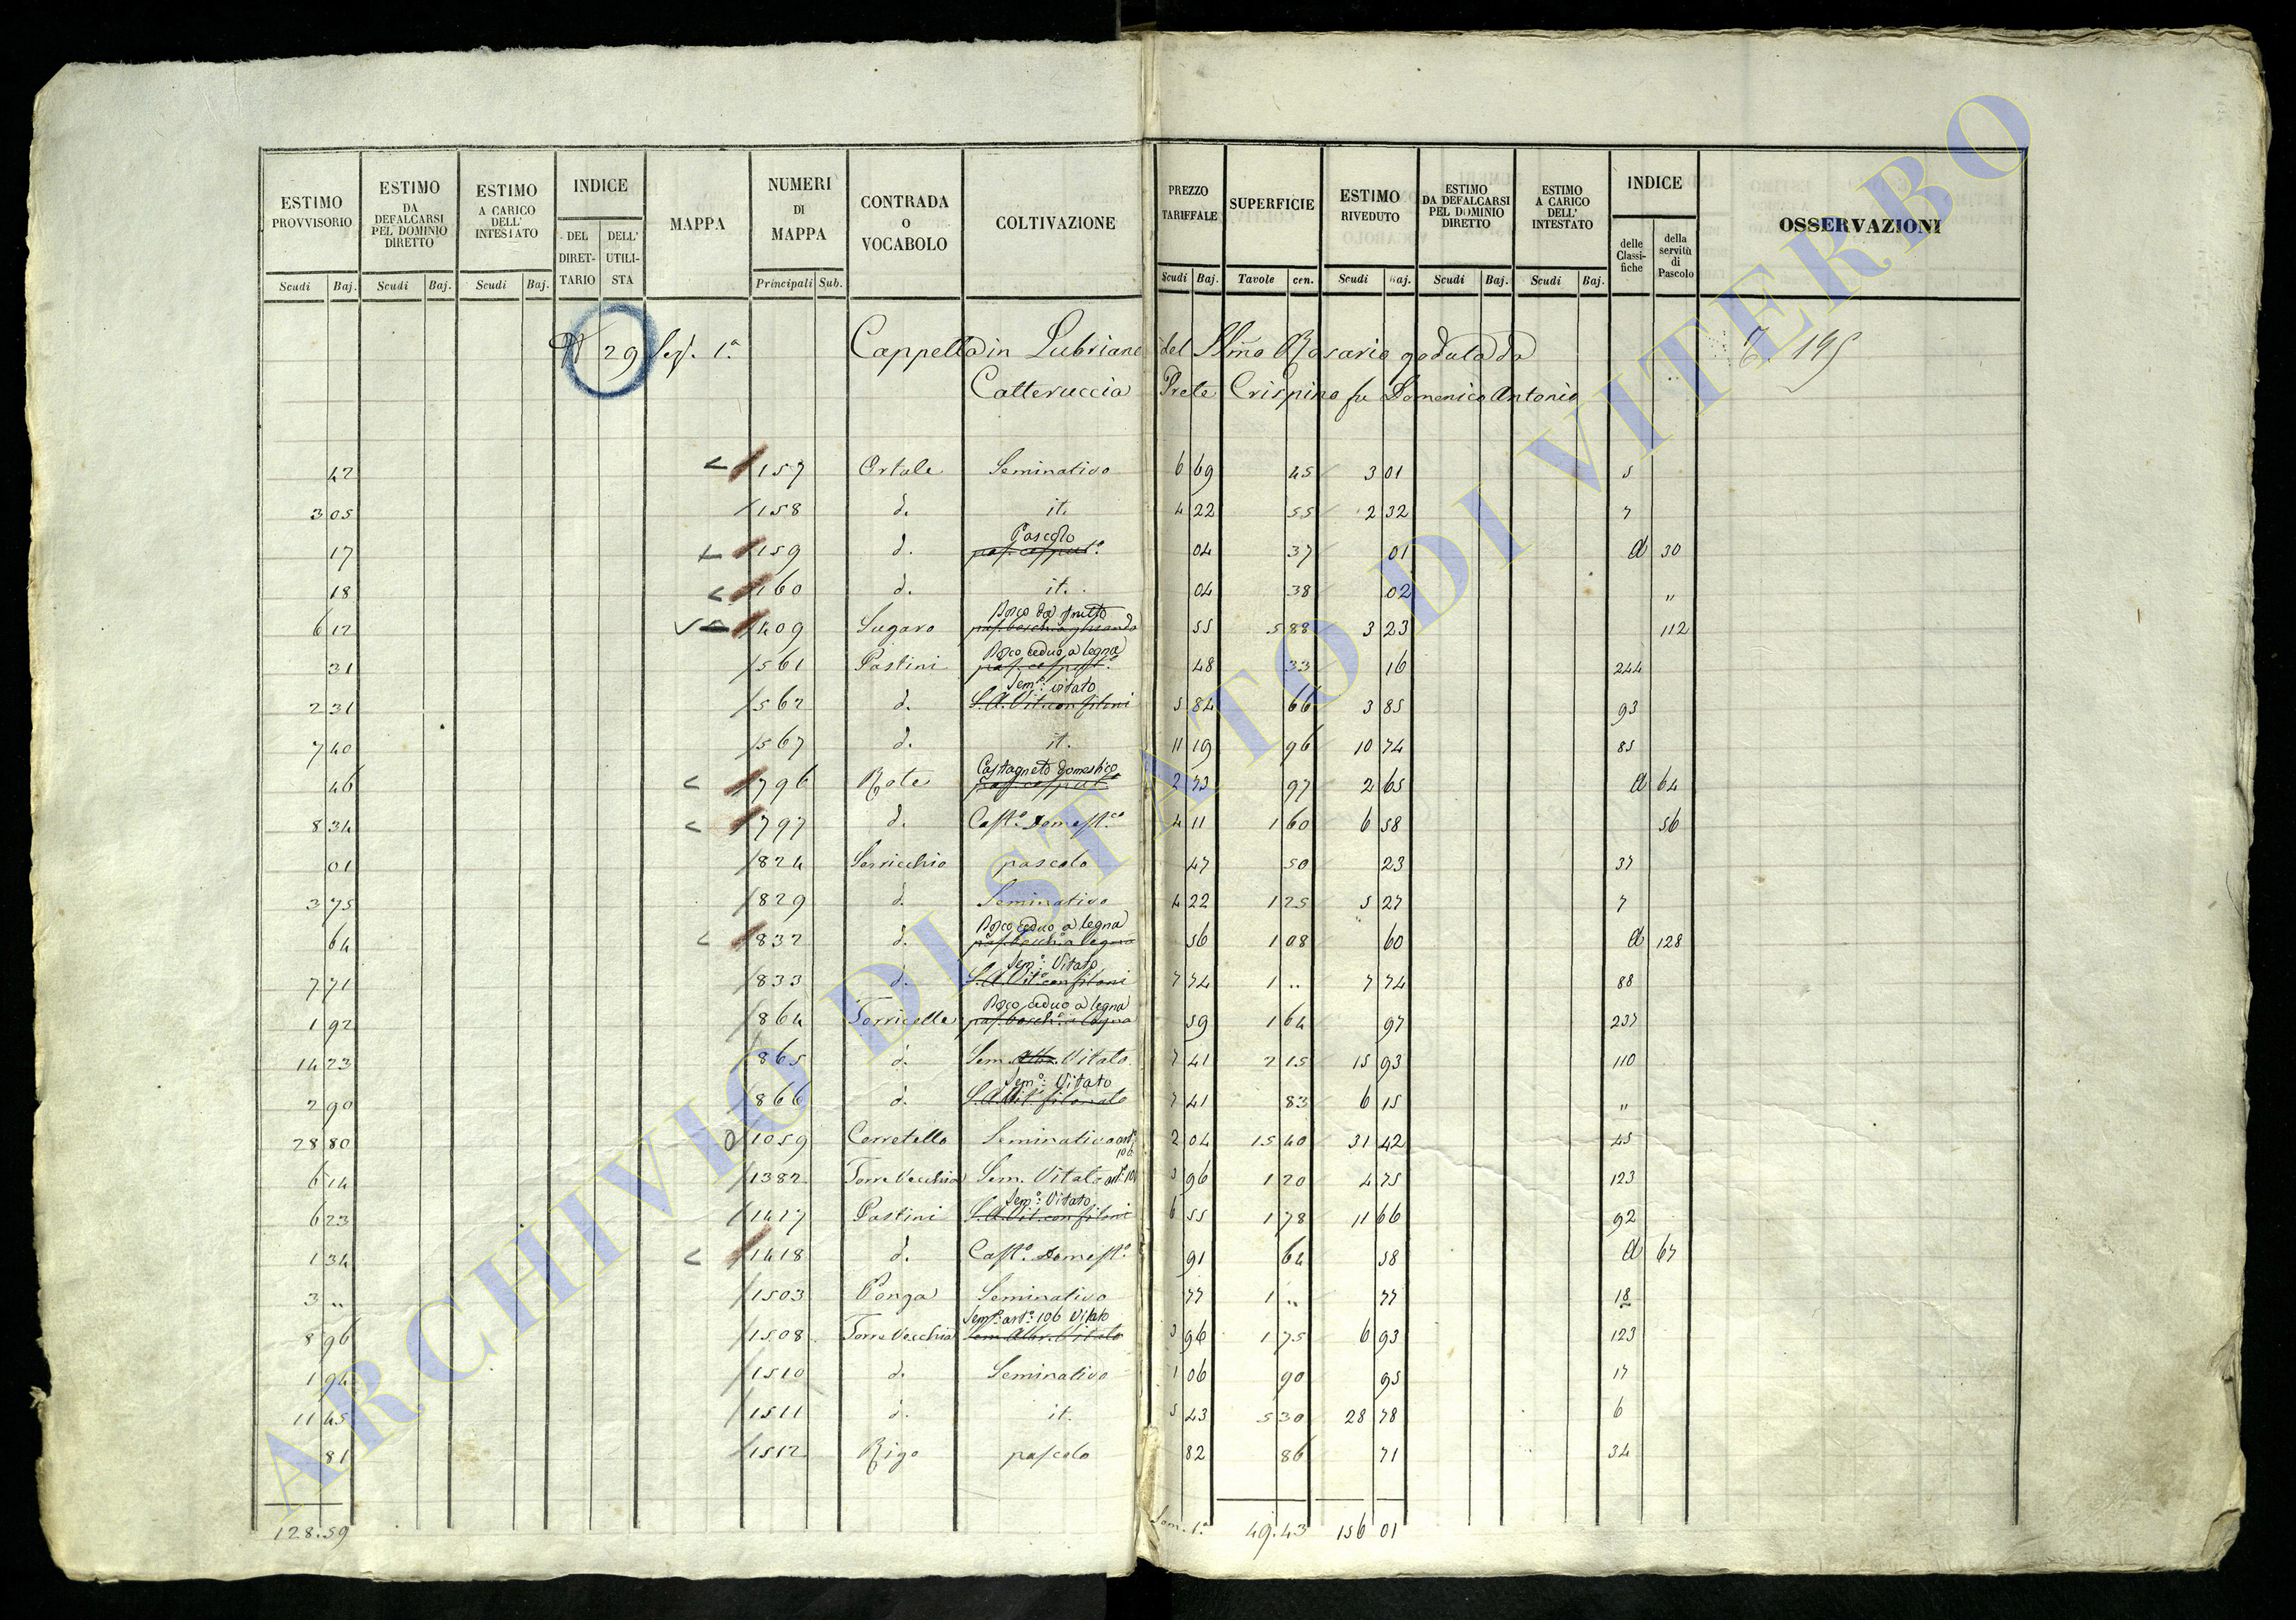 ESTIMO PROVVISORIO Scudi Baj. ESTIMO DA DEFALCARSI PEL DOMINIO DIRETTO Scudi Baj. ESTIMO A CARICO DELL' INTESTATO Scudi Baj. INDICE DEL DIRETTARIO DELL' UTILISTA MAPPA NUMERI DI MAPPA Principali Sub. CONTRADA o VOCABOLO COLTIVAZIONE PREZZO TARIFFALE Scudi Baj. SUPERFICIE Tavole cen. ESTIMO RIVEDUTO Scudi Baj. ESTIMO DA DEFALCARSI PEL DOMINIO DIRETTO Scudi Baj. ESTIMO A CARICO DELL' INTESTATO Scudi Baj. INDICE delle Classifiche della servitù di Pascolo OSSERVAZIONI
N 29 Sez. 1.ª Cappella in Lubriano del SSmo Rosario goduta da 195
Catteruccia Prete Crispino fu Domenico Antonio
42 157 Ortale Seminativo 6 69 45 3 01 5
3 05 158 d. it. 4 22 55 2 32 7
17 159 d. Pascolo 04 37 01 A 30
18 160 d. it. 04 38 02 "
6 12 409 Sugaro Bosco da frutto 55 5 88 3 23 112
31 561 Pastini Bosco ceduo a legna 48 33 16 244
2 31 562 d. Sem.º vitato S.A.Vit. con filoni 5 84 66 3 85 93
7 40 567 d. it. 11 19 96 10 74 85
46 796 Rote Castagneto domestico 2 73 97 2 65 A 64
8 34 797 d. Cast.º Domest.co 4 11 1 60 6 58 56
01 824 Sorricchio pascolo 47 50 23 37
3 75 829 d. Seminativo 4 22 1 25 5 27 7
64 832 d. Bosco ceduo a legna pas. bosch. a legna 56 1 08 60 A 128
7 71 833 d. Sem.º Vitato S.A.Vit. con filoni 7 74 1 .. 7 74 88
1 92 864 Torricella Bosco ceduo a legna pas. bosch. a legna 59 1 64 97 237
14 23 865 d. Sem. Alb. Vitato 7 41 2 15 15 93 110
2 90 866 d. Sem.º Vitato 7 41 83 6 15 "
28 80 1059 Cerretello Seminativo art.º 106 2 04 15 40 31 42 45
6 14 1382 Torre Vecchia Sem. Vitato art.º 106 3 96 1 20 4 75 123
6 23 1417 Pastini Sem.º Vitato S.A.Vit. con filoni 6 55 1 78 11 66 92
1 34 1418 d. Cast.º Domest.º 91 64 58 A 67
3 .. 1503 Ponga Seminativo 77 1 .. 77 18
8 96 1508 Torre Vecchia Sem.º art.º 106 Vitato Sem. Alb. Vitato 3 96 1 75 6 93 123
1 94 1510 d. Seminativo 1 06 90 95 17
11 45 1511 d. it. 5 43 5 30 28 78 6
81 1512 Rigo pascolo 82 86 71 34
128.59 Som. 1.ª 49.43 156 01
ARCHIVIO DI STATO DI VITERBO